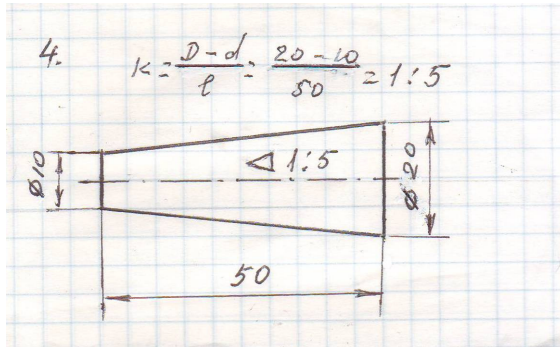 4.
K = D - d / l = 20 - 10 / 50 = 1:5
Ø10
◁ 1:5
Ø20
50